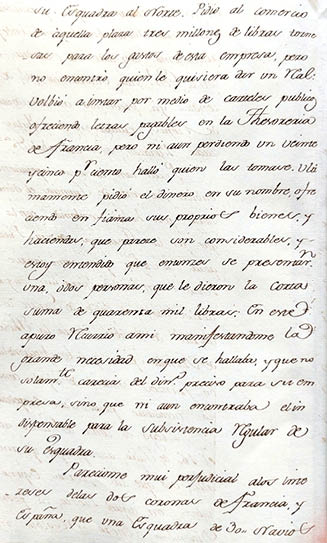 su Esquadra al Norte. Pidió al comercio
de aquella plaza tres millones de libras torne
sas para los gastos de esta empresa, pero
no encontró quien le quisiera dar un Real.
Volbió a tentar por medio de carteles publicos
ofreciendo letras pagables en la Thesoreria
de Francia, pero ni aun perdiendo un veinte
y cinco pr ciento halló quien las tomase. Ulti
mamente pidió el dinero en su nombre, ofre
ciendo en fianza sus proprios bienes, y
haciendas, que parece son considerables, y
estoy entendido que entonces se presentarn
una, o dos personas, que le dieron la corta
suma de quarenta mil libras. En este
apuro recurrio a mi manifestandome la
grande necesidad en que se hallaba, y que no
solamte carecia del dino preciso para su em
presa, sino que ni aun encontraba el in
dispensable para la subsistencia regular de
su Esquadra.
Pareciome mui perjudicial a los inte
reses de las dos coronas de Francia, y
España, que una Esquadra de 30 Navios